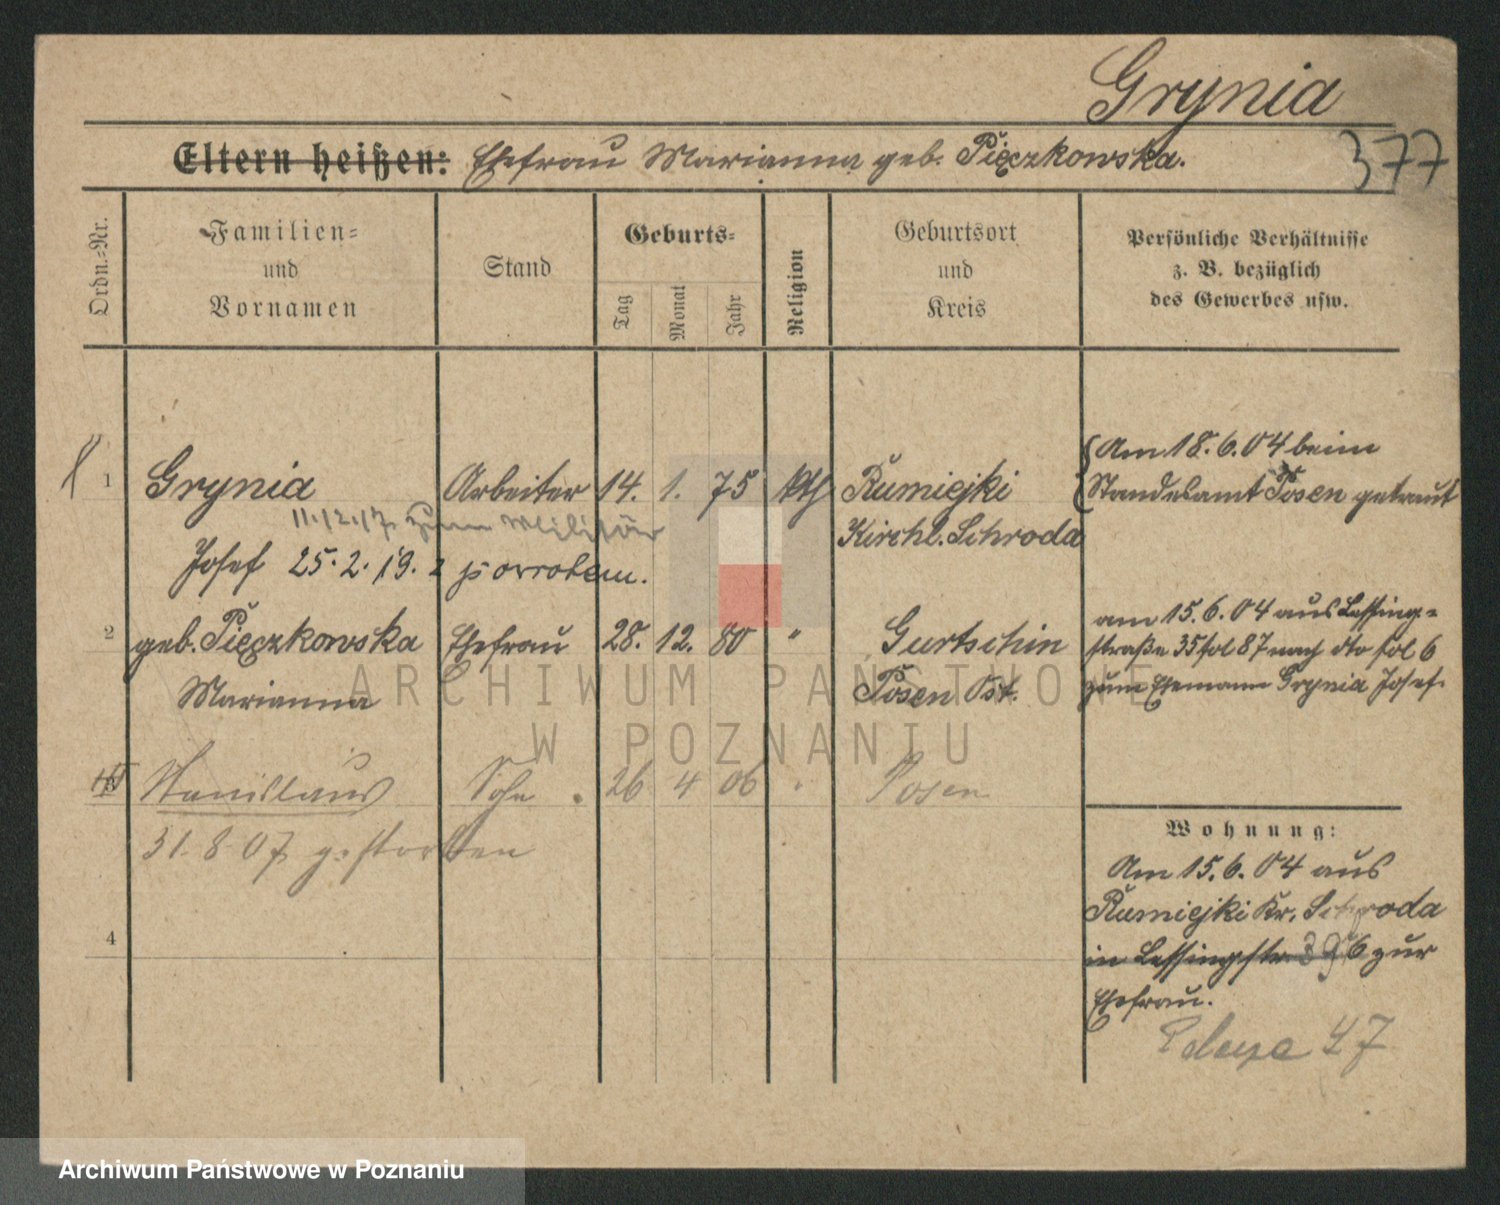 Grynia
377
Eltern heißen: Ehefrau Marianna geb. Pięczkowska.
Ordn.-Nr.
Familien-
und
Vornamen
Stand
Geburts-
Tag
Monat
Jahr
Religion
Geburtsort
und
Kreis
Persönliche Verhältnisse
z. B. bezüglich
des Gewerbes usw.
1 Grynia Arbeiter 14. 1. 75 kth Rumiejki
Kirchl. Schroda
11./2./17. zum Militär
Josef 25. 2. 19.
{Am 18.6.04 beim
Standesamt Posen getraut
2 geb. Pięczkowska Ehefrau 28. 12. 80 " Gurtschin
Marianna Posen Ost.
am 15.6.04 aus Lessing-
straße 35 fol 87 nach dto fol 6
zum Ehemann Grynia Josef.
Stanislaus Sohn 26 4 06 " Posen
31.8.07 gestorben
4
Wohnung:
Am 15.6.04 aus
Rumiejki Kr. Schroda
in Lessingstr. 6 zur
Ehefrau.
47
ARCHIWUM PAŃSTWOWE
W POZNANIU
Archiwum Państwowe w Poznaniu